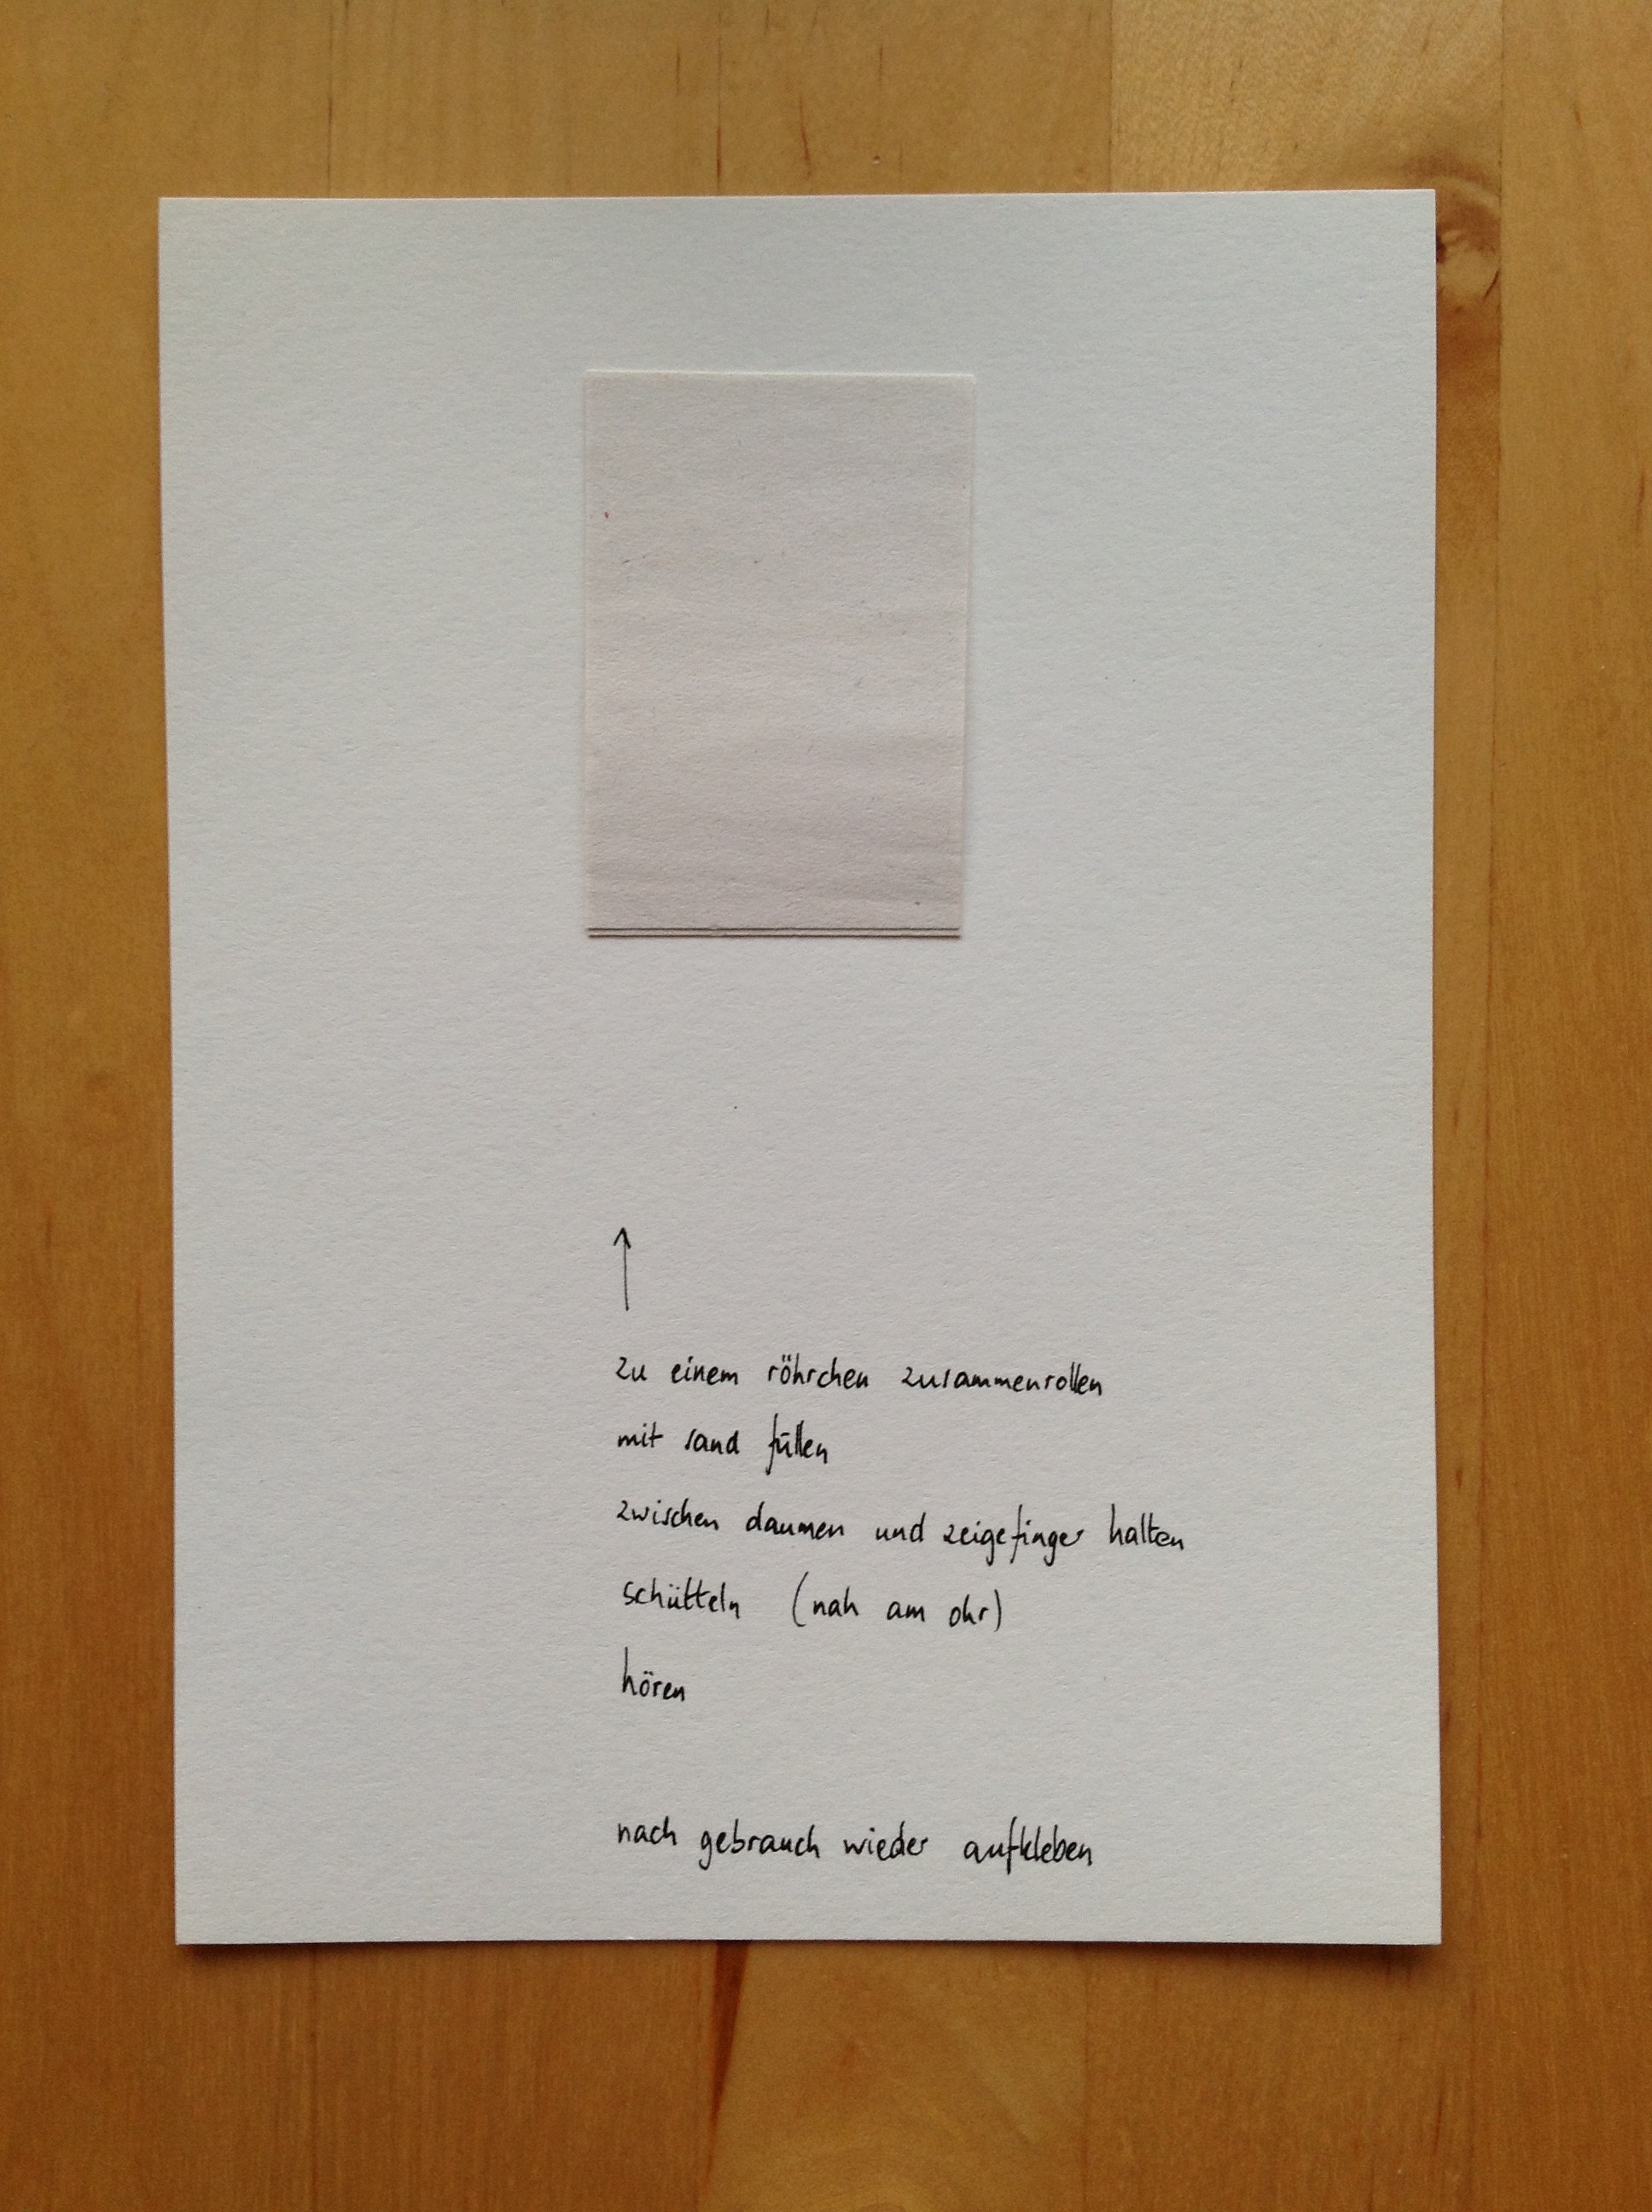 zu einem röhrchen zusammenrollen
mit sand füllen
zwischen daumen und zeigefinger halten
schütteln (nah am ohr)
hören
nach gebrauch wieder aufkleben